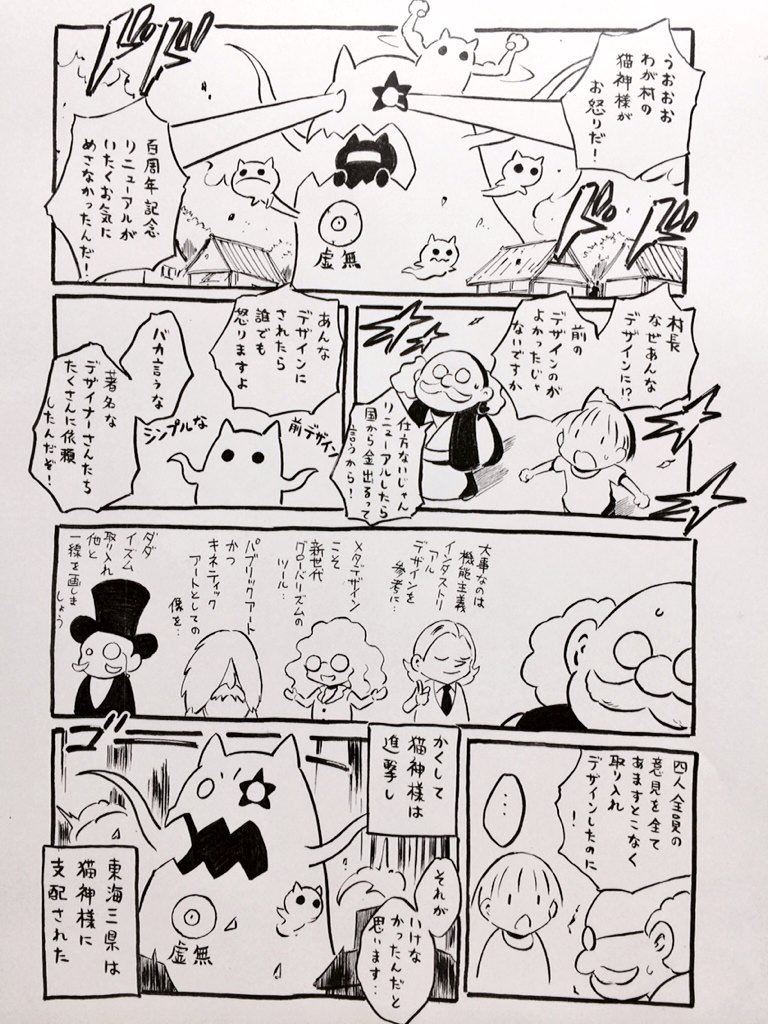 ドドドド
うおおお
わが村の
猫神様が
お怒りだ!
百周年記念
リニューアルが
いたくお気に
めさなかったんだ!
ドドドド
虚無
村長
なぜあんな
デザインに!?
前の
デザインのが
よかったじゃ
ないですか
仕方ないじゃん
リニューアルしたら
国から金出るって
言うから!
あんな
デザインに
されたら
誰でも
怒りますよ
バカ言うな
著名な
デザイナーさんたち
たくさんに依頼
したんだぞ!
前デザイン
シンプルな
大事なのは
機能主義
インダストリ
アル
デザインを
参考に…
メタデザイン
こそ
新世代
グローバリズムの
ツール…
パブリックアート
かつ
キネティック
アートとしての
像を…
ダダ
イズム
取り入れ
他と
一線を画しま
しょう
四人全員の
意見を全て
あますとこなく
取り入れ
デザインしたのに
!
…
それが
いけな
かったんだと
思います…
かくして
猫神様は
進撃し
ゴ
虚無
東海三県は
猫神様に
支配された